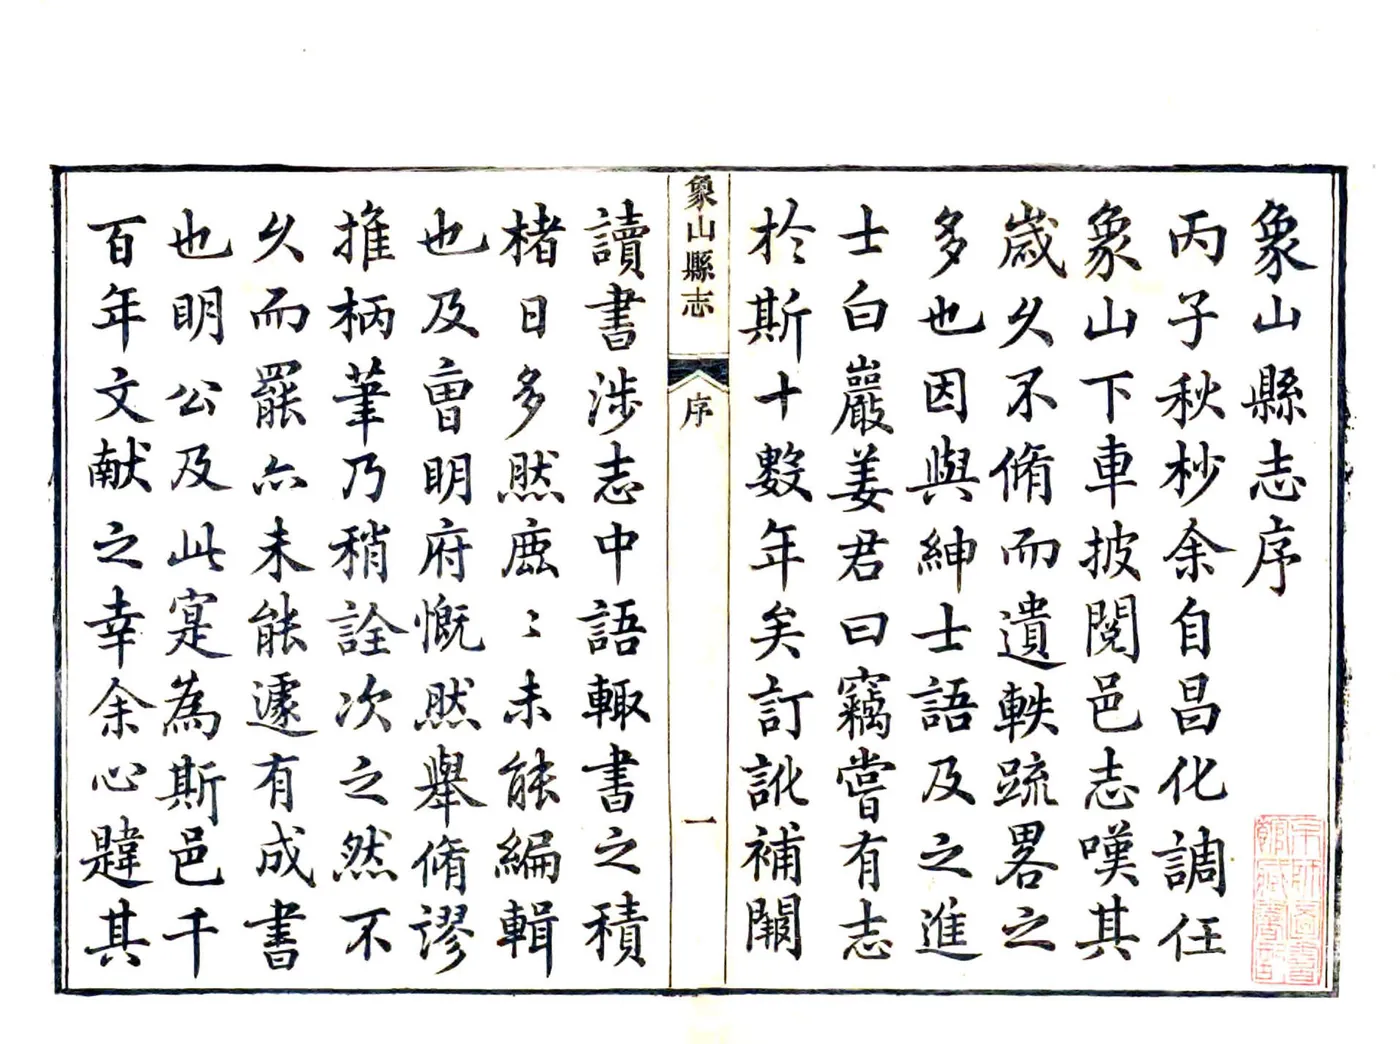 象山縣志序
丙子秋杪余自昌化調任
象山下車披閱邑志嘆其
歲久不脩而遺軼疏畧之
多也因與紳士語及之進
士白巖姜君曰竊嘗有志
於斯十數年矣訂訛補闕
象山縣志
序
一
讀書涉志中語輙書之積
楮日多然麤〻未能編輯
也及曺明府慨然舉脩謬
推柄筆乃稍詮次之然不
久而罷亦未能遽有成書
也明公及此寔為斯邑千
百年文献之幸余心韙其